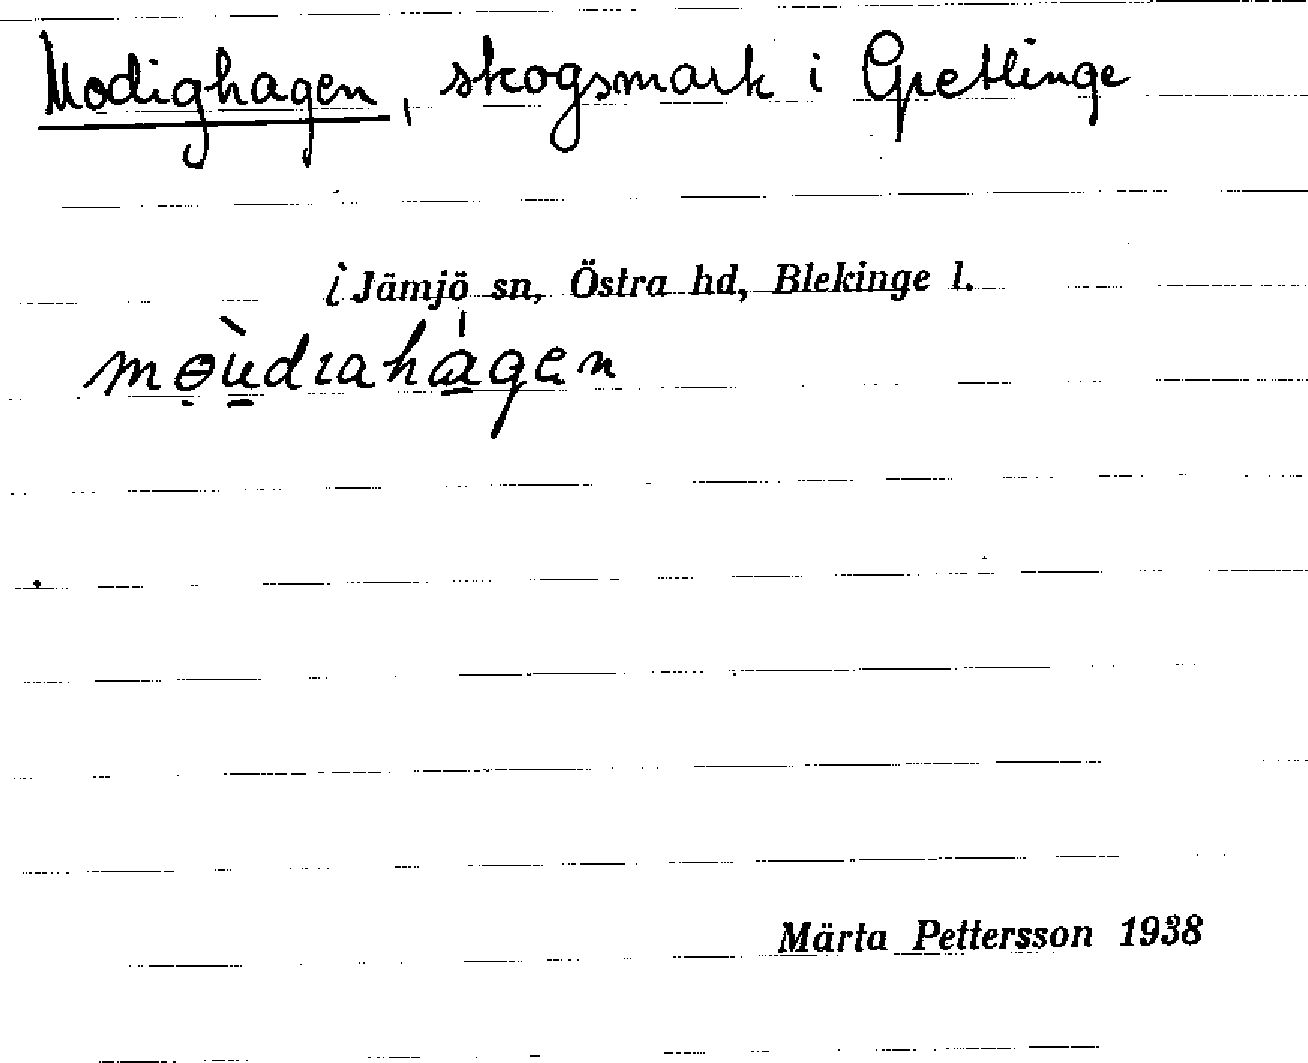 Modighagen, skogsmark i Gretlinge
i Jämjö sn, Östra hd, Blekinge l.
Märta Pettersson 1938